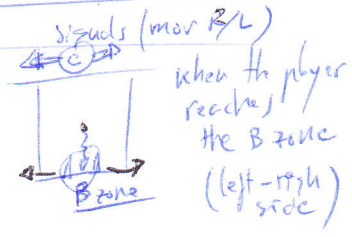 signals (mov R/L)
C
when the player
reaches
the B zone
(left-right
side)
B zone